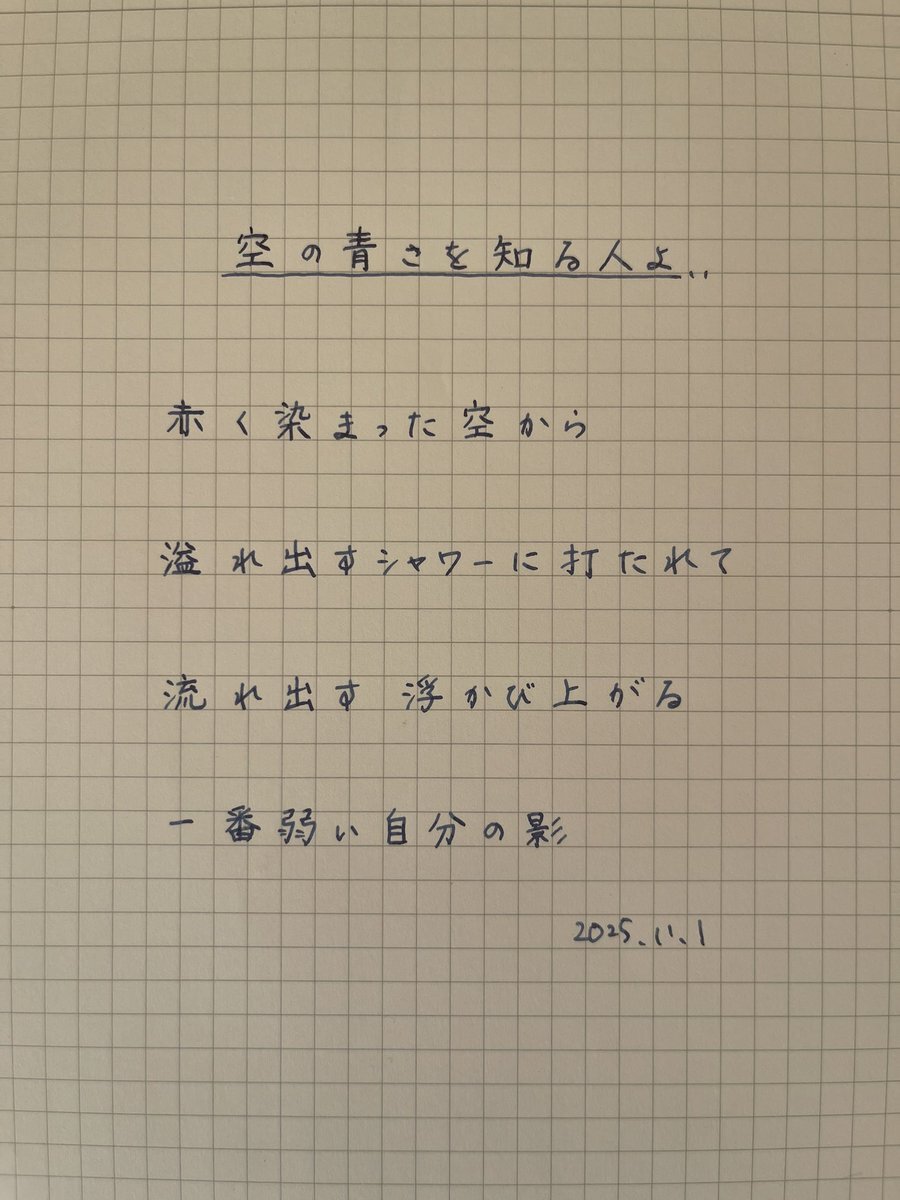 空の青さを知る人よ..
赤く染まった空から
溢れ出すシャワーに打たれて
流れ出す 浮かび上がる
一番弱い自分の影
2025.11.1